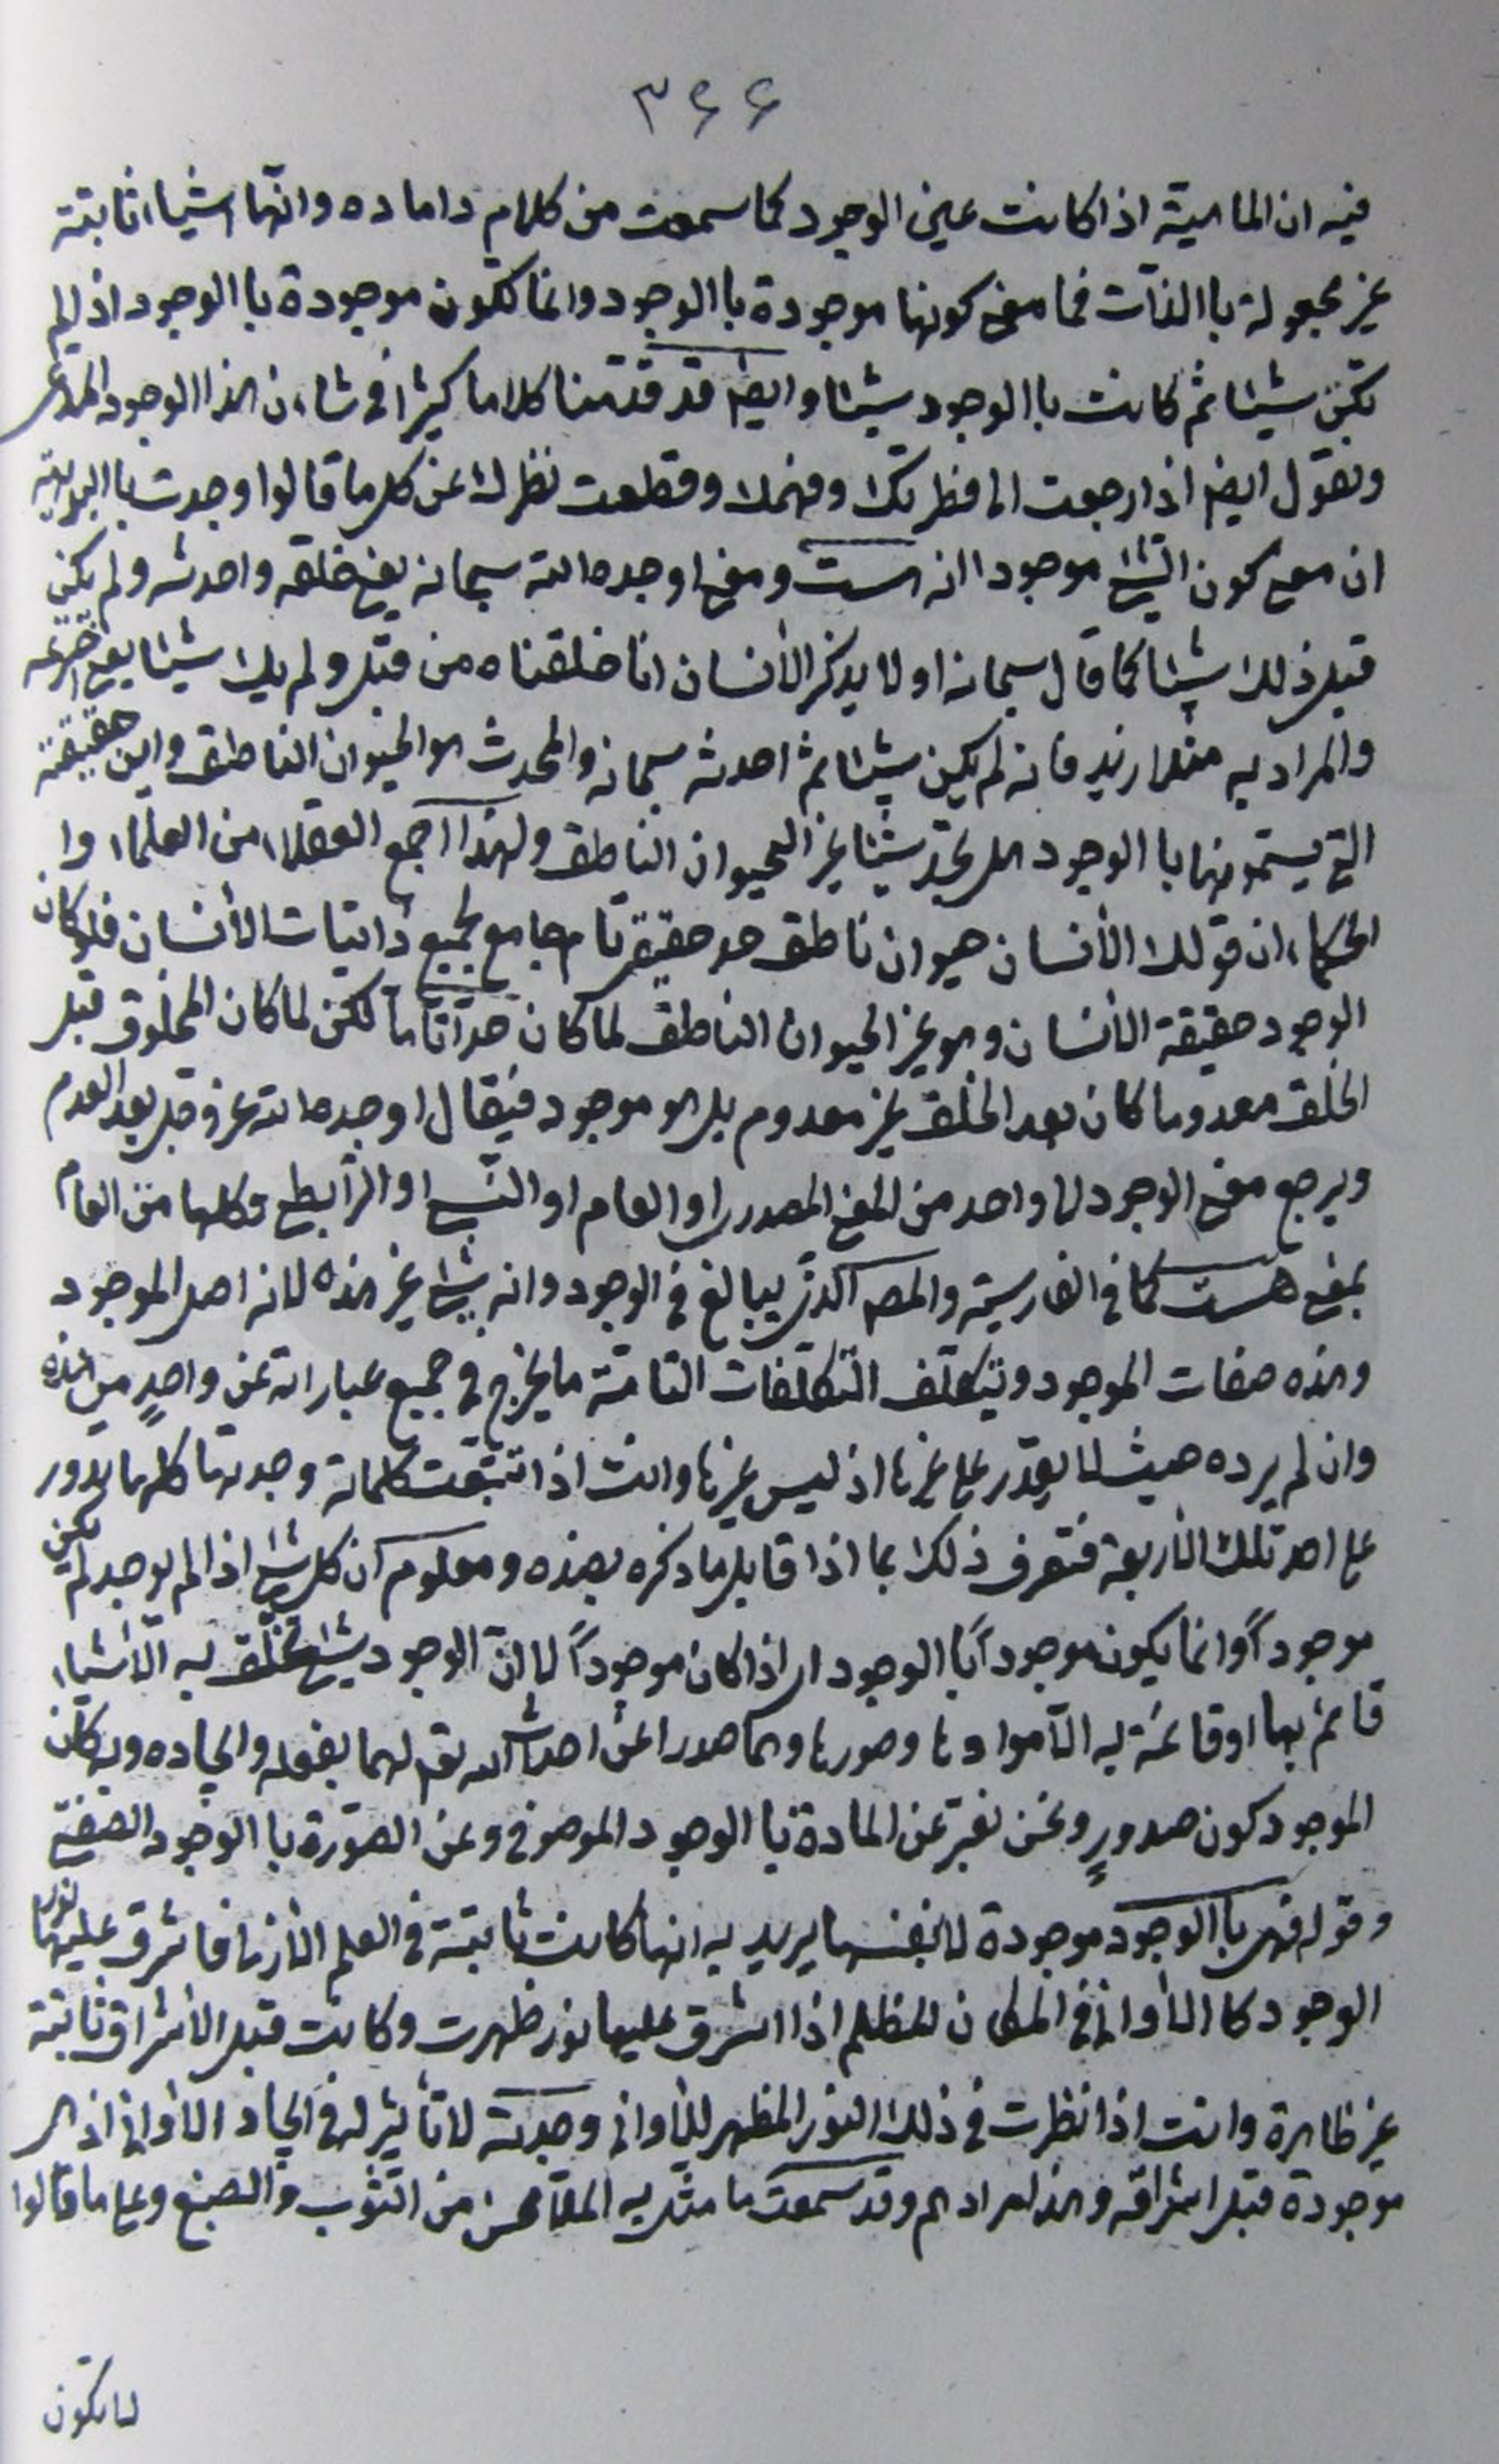 ۳۶۶
فيه ان الماهية اذا كانت عين الوجود كما سمعت من كلام داماده وانّها اشياء ثابتة
غير مجعولة باالذات فما معنى كونها موجودة باالوجود وانما تكون موجودة باالوجود اذ لم
تكن شيئا ثم كانت باالوجود شيئا وايضا قد قدّمنا كلاما كثيرا فى شاءن هذا الوجود المدّعى
ونقول ايضا اذا رجعت الى فطرتك وفهمك وقطعت نظرك عن كل ما قالوا وجدت باالبديهة
ان معنى كون الشىء موجودا انه هست ومعنى اوجده الله سبحانه يعنى خلقه واحدثه ولم يكن
قبل ذلك شيئا كما قال سبحانه اولا يذكر الأنسان انا خلقناه من قبل ولم يك شيئا يعنى اخترعه
والمراد به مثلا زيد فانه لم يكن شيئا ثم احدثه سبحانه والمحدث هو الحيوان الناطق واين حقيقته
التى يسمّونها باالوجود هل تجد شيئا غير الحيوان الناطق ولهذا اجمع العقلاء من العلماء وا
الحكماء ان قولك الأنسان حيوان ناطق حد حقيقى تام جامع لجميع ذاتيات الأنسان فلو كان
الوجود حقيقة الأنسان وهو غير الحيوان الناطق لما كان حدّا تامّا لكن لما كان المخلوق قبل
الخلق معدوما كان بعد الخلق غير معدوم بل هو موجود فيقال اوجده الله عز وجل بعد العدم
ويرجع معنى الوجود الى واحد من المعنى المصدرى او العام او النسبى او الرابطى وكلها من العام
بمعنى هست كما فى الفارسية والمصـ الذى يبالغ فى الوجود وانه شىء غير هذه لانه اصل الموجود
وهذه صفات الموجود ويتكلّف التكلّفات التامّة ما يخرج فى جميع عباراته عن واحدٍ من هذه
وان لم يرده حيث لا يقدر على غيرها اذ ليس غيرها وانت اذا تتبّعت كلماته وجدتها كلها تدور
على احد تلك الأربعة فتعرف ذلك بما اذا قابل ما ذكره بهذه ومعلوم ان كل شىء اذا لم يوجد لم يكن
موجوداً وانما يكون موجوداً باالوجود اى اذا كان موجوداً لا انّ الوجود شىء تخلّق به الأشياء
قائم بها او قائمة به الّا موادها وصورها وهما صدرا عن احداث الله تع لهما بفعله وايجاده وبه كان
الموجود كون صدورٍ ونحن نعبّر عن المادة باالوجود الموصوفى وعن الصّورة باالوجود الصفتىّ
وقوله فهى باالوجود موجودة لا بنفسها يريد به انها كانت ثابتة فى العلم الأزلى فاشرق عليها نور
الوجود كاالأوانى فى المكان المظلم اذا اشرق عليها نور ظهرت وكانت قبل الأشراق ثابتة
غير ظاهرة وانت اذا نظرت فى ذلك النور المظهر للأوانى وجدته لا تأثير له فى ايجاد الأوانى اذ هى
موجودة قبل اشراقه وهذا مرادهم وقد سمعت ما مثّل به الملّا محسن من الثوب والصبغ وعلى ما قالوا
لا يكون